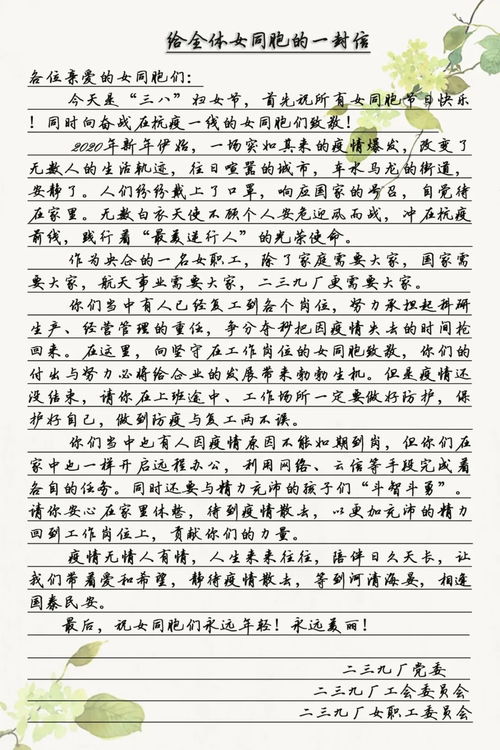 给全体女同胞的一封信
各位亲爱的女同胞们：
今天是“三八”妇女节，首先祝所有女同胞节日快乐
！同时向奋战在抗疫一线的女同胞们致敬！
2020年新年伊始，一场突如其来的疫情爆发，改变了
无数人的生活轨迹，往日喧嚣的城市，车水马龙的街道，
安静了。人们纷纷戴上了口罩，响应国家的号召，自觉待
在家里。无数白衣天使不顾个人安危迎风而战，冲在抗疫
前线，践行着“最美逆行人”的光荣使命。
作为央企的一名女职工，除了家庭需要大家，国家需
要大家，航天事业需要大家，二三九厂更需要大家。
你们当中有人已经复工到各个岗位，努力承担起科研
生产、经营管理的重任，争分夺秒把因疫情失去的时间抢
回来。在这里，向坚守在工作岗位的女同胞致敬，你们的
付出与努力必将给企业的发展带来勃勃生机。但是疫情还
没结束，请你在上班途中、工作场所一定要做好防护，保
护好自己，做到防疫与复工两不误。
你们当中也有人因疫情原因不能如期到岗，但你们在
家中也一样开启远程办公，利用网络、云信等手段完成着
各自的任务。同时还要与精力充沛的孩子们“斗智斗勇”。
请你安心在家里休整，待到疫情散去，以更加充沛的精力
回到工作岗位上，贡献你们的力量。
疫情无情人有情，人生来来往往，陪伴日久天长，让
我们带着爱和希望，静待疫情散去，等到河清海晏，相逢
国泰民安。
最后，祝女同胞们永远年轻！永远美丽！
二三九厂党委
二三九厂工会委员会
二三九厂女职工委员会